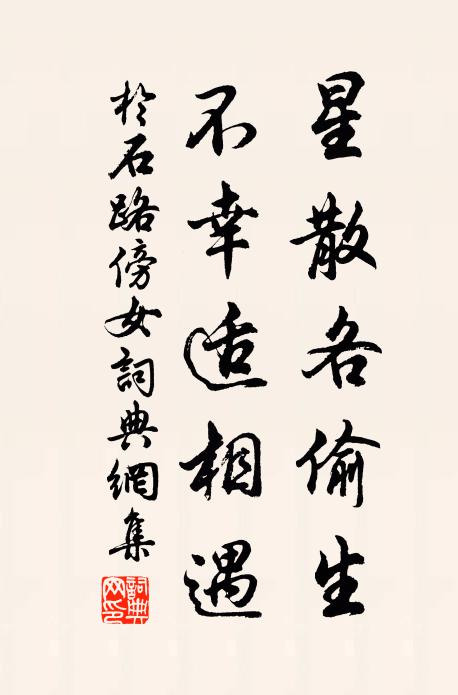 星散各偷生
不幸适相遇
於石路傍女詞典網集
詞典网印